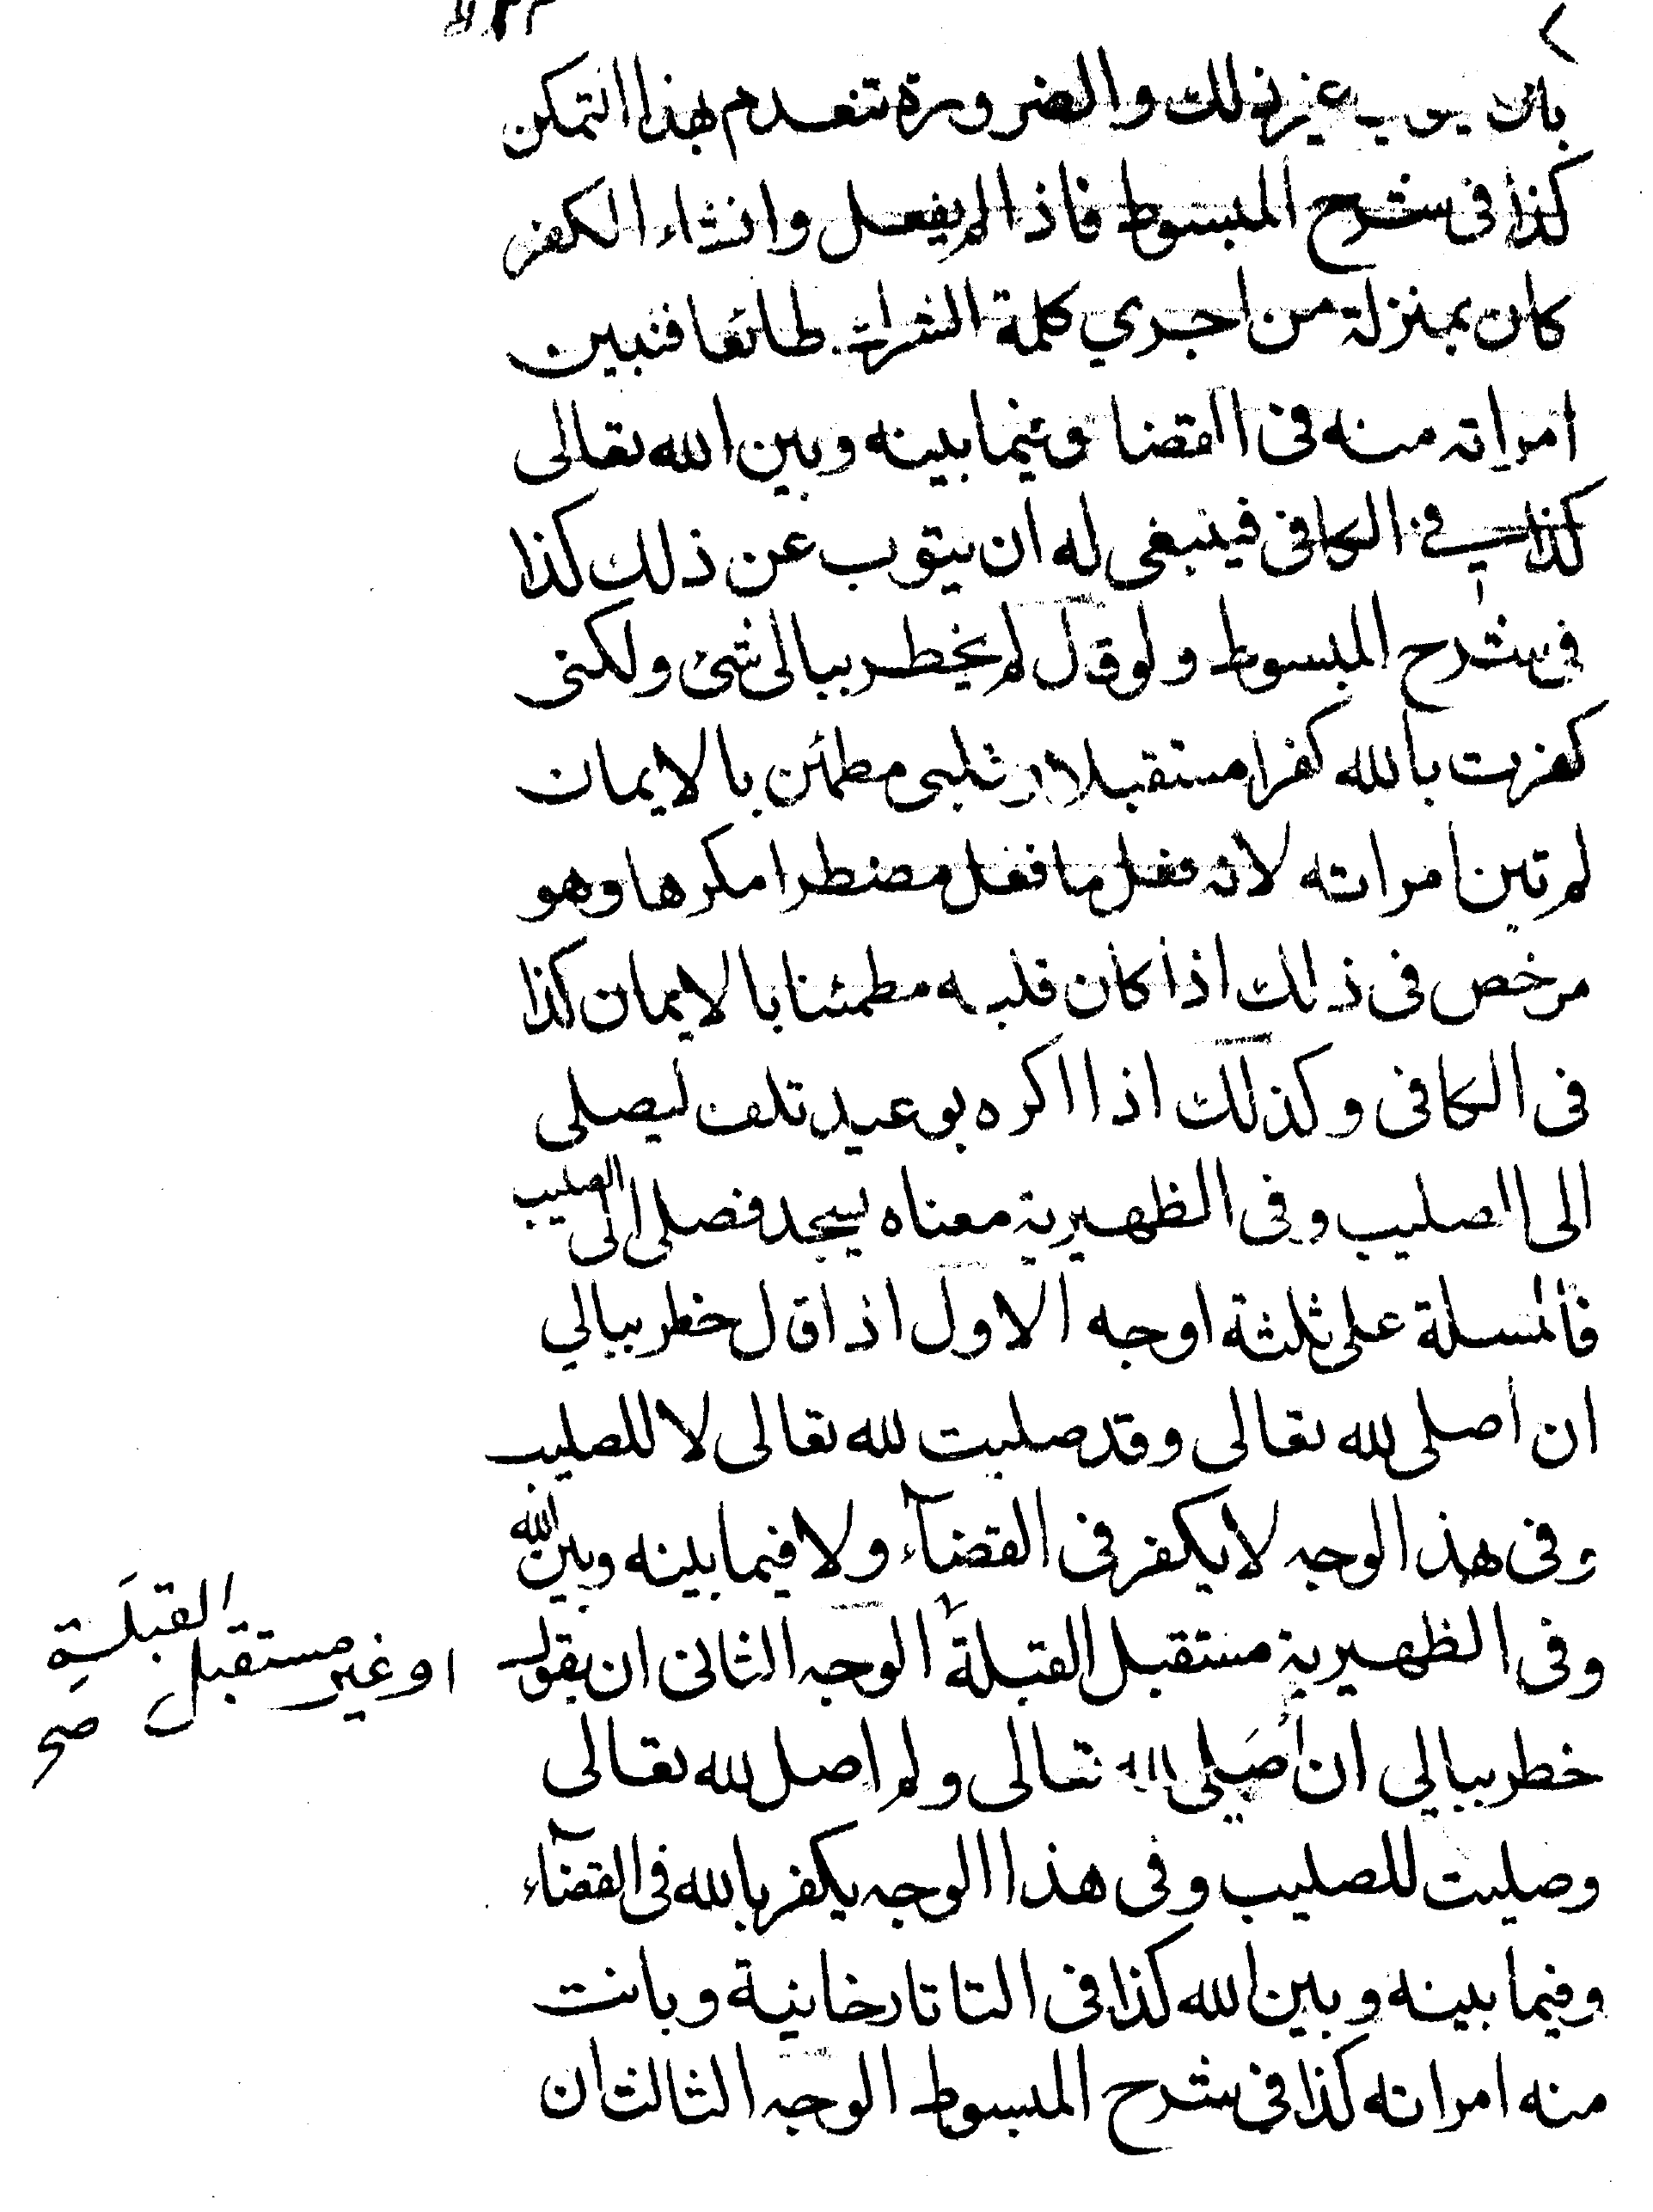 غير ذلك والضرورة تنعدم بهذا التمكن
كذا فى شرح المبسوط فاذا لم يفعل وانشاء الكفر
كان بمنزلة من اجري كلمة الشرك طائعا فتبين
امراته منه فى القضا وفيما بينه وبين الله تعالى
كذا في الكافى فينبغى له ان يتوب عن ذلك كذا
فى شرح المبسوط ولو قال لم يخطر ببالى شئ ولكنى
كفرت بالله كفرا مستقبلا وقلبى مطمئن بالايمان
لم تبن امراته لانه فعل ما فعل مضطرا مكرها وهو
مرخص فى ذلك اذا كان قلبه مطمئنا بالايمان كذا
فى الكافى وكذلك اذا اكره بوعيد تلف ليصلى
الى الصليب وفى الظهيرية معناه يسجد فصلى الى الصليب
فالمسلة على ثلثة اوجه الاول اذا قال خطر ببالي
ان اصلى لله تعالى وقد صليت لله تعالى لا للصليب
وفى هذا الوجه لا يكفر فى القضآء ولا فيما بينه وبين الله
وفى الظهيرية مستقبل القبلة الوجه الثانى ان يقول
او غير مستقبل القبلة صح
خطر ببالي ان اصلي لله تعالى ولم اصل لله تعالى
وصليت للصليب وفى هذا الوجه يكفر بالله فى القضآء
وفيما بينه وبين الله كذا فى التاتارخانية وبانت
منه امراته كذا فى شرح المبسوط الوجه الثالث ان